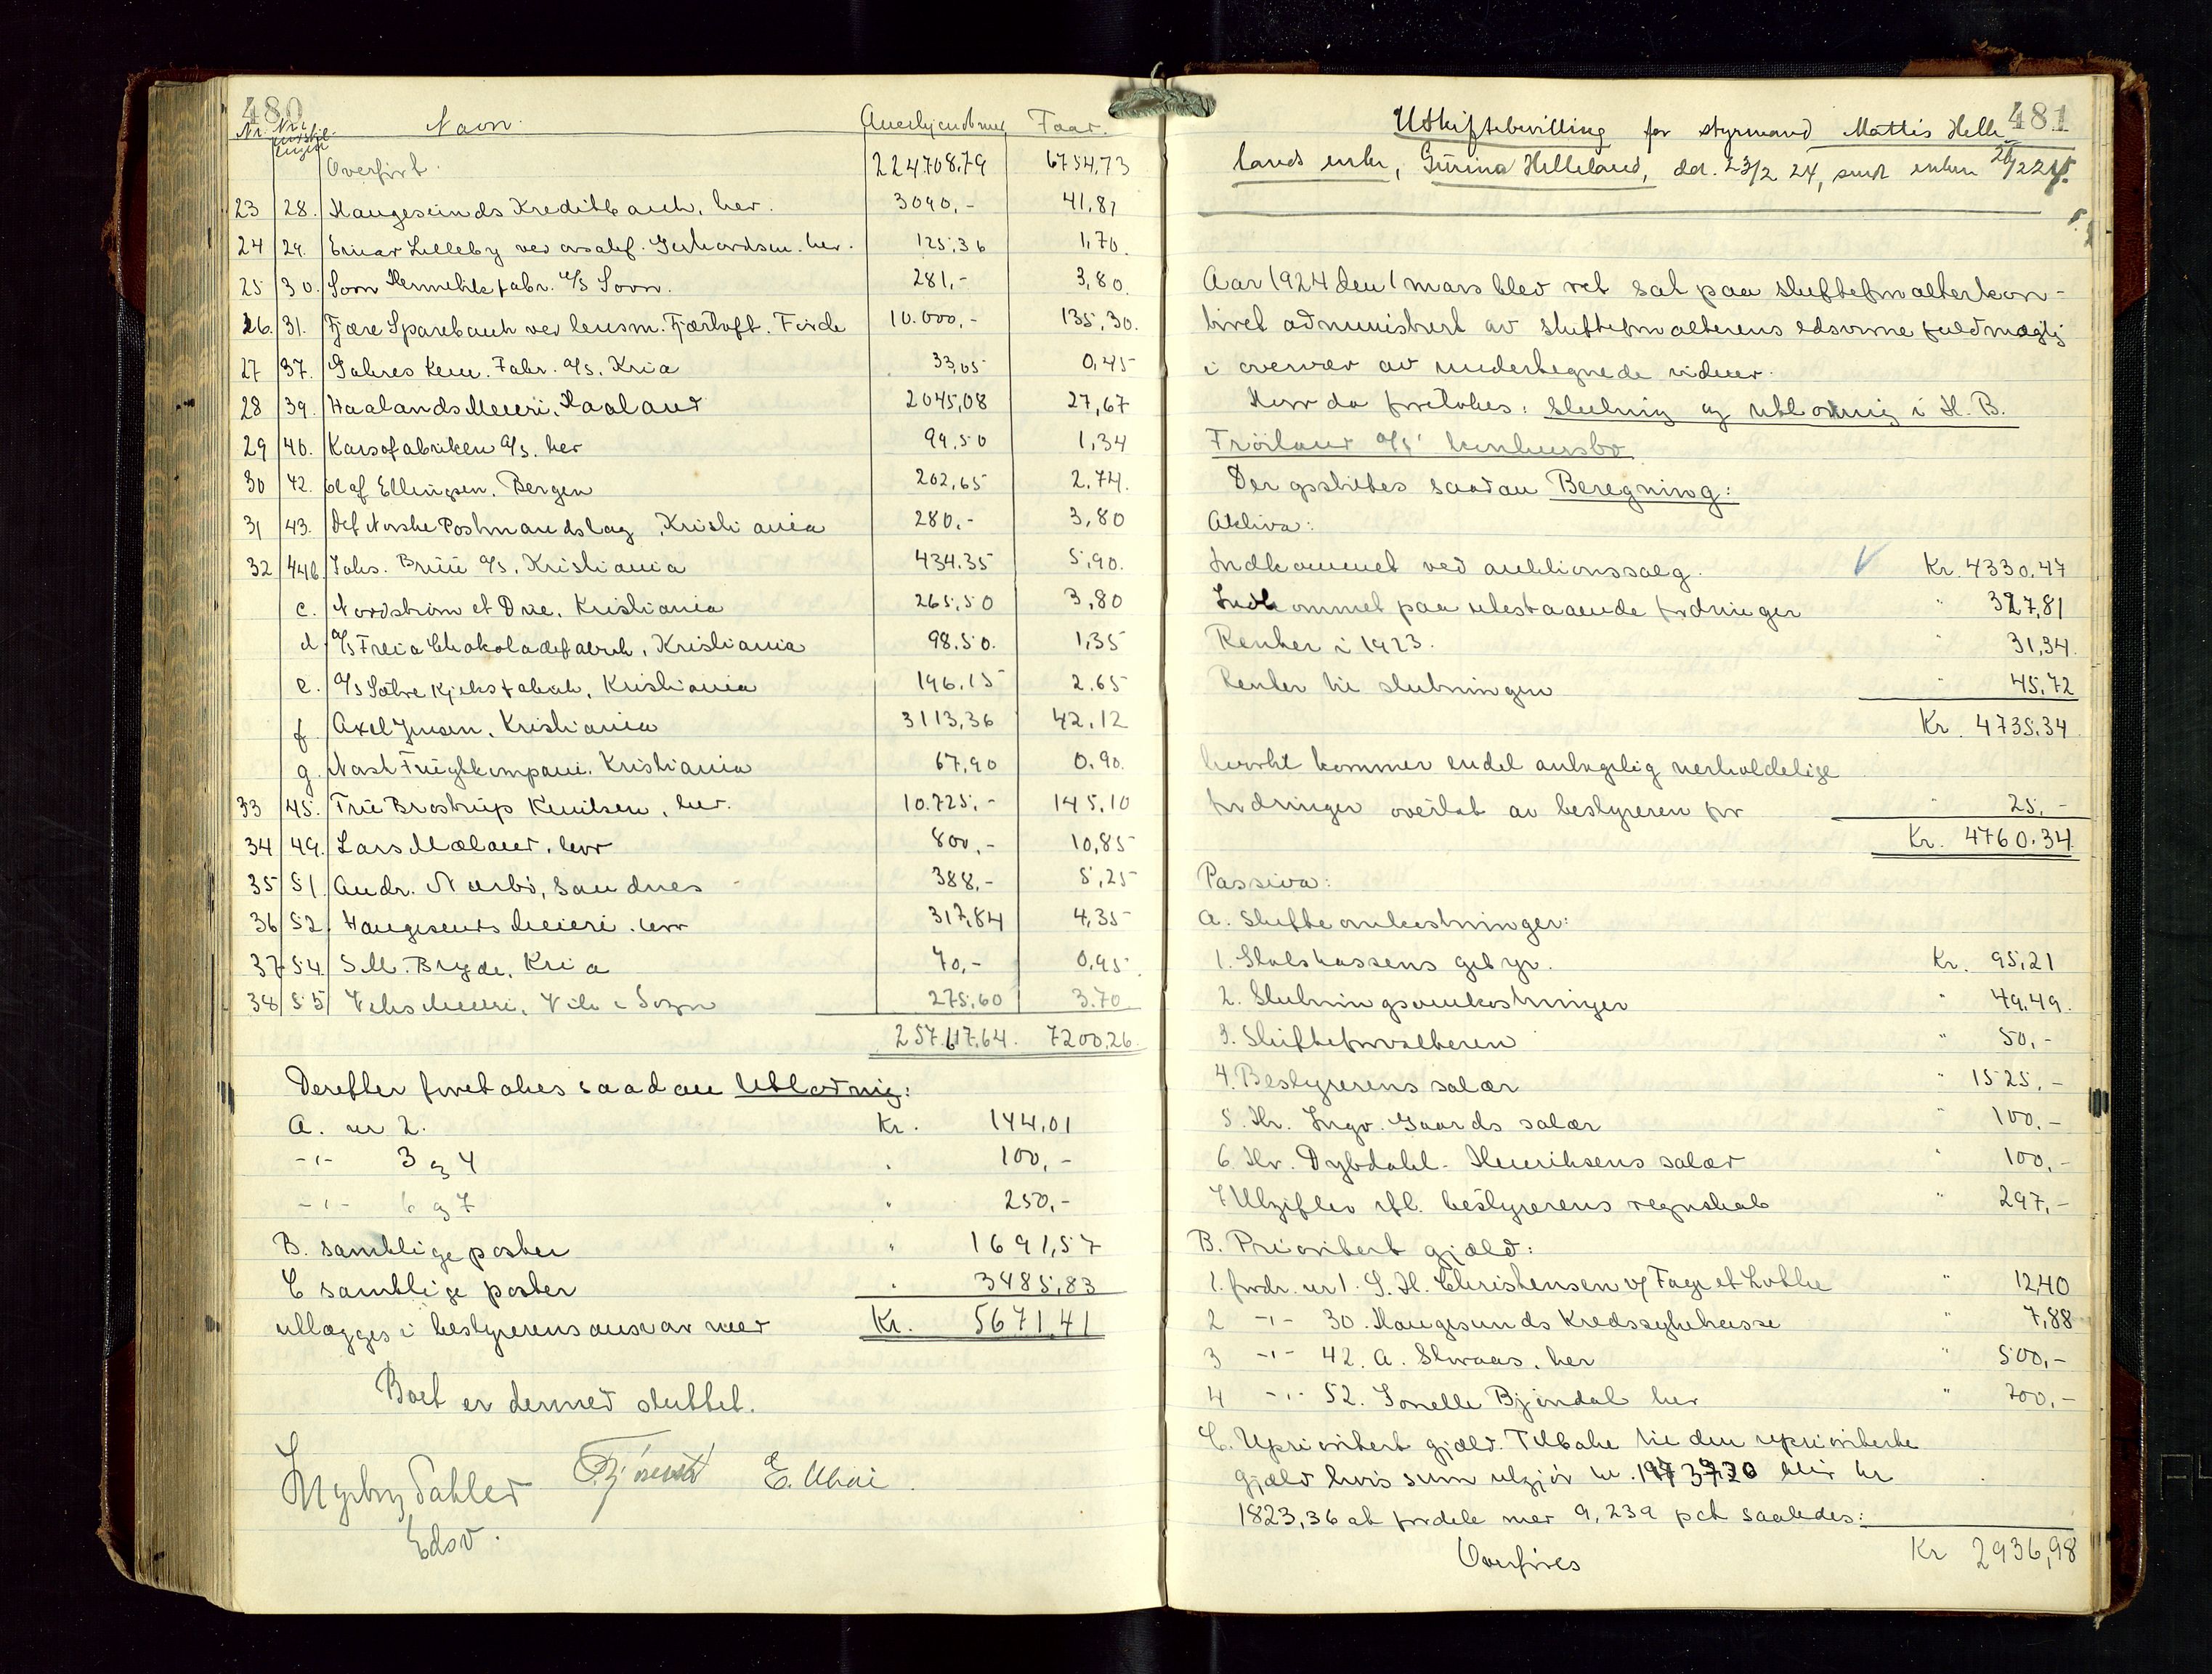 480
Nr. Nr. i Navn. Anerkjendt med Faar.
Overført. 224.708,79 6754,73
23 28. Haugesunds Kreditbank, her. 3090,- 41,81
24 29. Einar Lilleby ved orsakf. Gerhardsen. her. 125,36 1,70.
25 30. Sovn Hermetikfabr. A/S Sovn. 281,- 3,80.
26. 31. Fjære Sparebank ved lensm. Fjærtoft. Førde 10.000,- 135,30.
27 37. Gahres kem. Fabr. A/S. Kria 33,05 0,45
28 39. Haalands Meieri, Haaland 2045,08 27,67
29 40. Karsofabriken A/S. her 99,50 1,34
30 42. Olaf Ellingsen. Bergen 202,65 2.74.
31 43. Det Norske Postmandslag, Kristiania 280,- 3,80
32 44b. Johs. Bruu A/S, Kristiania 434.35 5,90.
c. Nordstrøm et Due, Kristiania 265,50 3,80
d. A/S Freia Chokoladefabrik, Kristiania 98.50. 1,35
e. A/S Sætre Kjeksfabrik, Kristiania 196,15 2.65
f. Axel Jensen, Kristiania 3113,36 42,12
g. Norsk Frugtkompani. Kristiania 67,90 0,90.
33 45. Frue Brostrup Knutsen, her. 10.725,- 145,10
34 49. Lars Mæland, her 800,- 10,85
35 51. Andr. Nærbø, Sandnes 388,- 5,25
36 52. Haugesunds Meieri. her 317,84 4,35
37 54. S.M. Bryde, Kria 70,- 0,95.
38 55 Viks Meieri, Vik i Sogn 275,60 3.70
257.617,64. 7200,26.
Derefter foretokes saadan Utlodning:
A. nr 2. Kr. 144,01
-"- 3 og 4 " 100,-
-"- 6 og 7 " 250,-
B. samtlige poster " 1691,57
C samtlige poster " 3485,83
utlægges i bestyrerens ansvar med Kr. 5671,41
Boet er dermed sluttet.
Ingebrg Dahler E. Uhai.
Edsv.
481
Utskiftebevilling for styrmand Mattis Helle
lands enke, Gurina Helleland, dat. 23/2 24, sendt enken 26/2 24.
Aar 1924 den 1 mars blev ret sat paa skifteforvalterkon-
toret administrert av skifteforvalterens edsvorne fuldmægtig
i overvær av undertegnede vidner.
Hvor da foretokes: Slutning og utlodning i H. B.
Frøiland A/S' konkursbo
Der opstilles saadan Beregning:
Aktiva:
Indkommet ved auktionssalg. Kr. 4330,47
Indkommet paa utestaaende fordringer " 327,81
Renter i 1923. " 31,34.
Renter til slutningen " 45,72
Kr. 4735,34.
hvortil kommer endel antagelig verholdelige
fordringer overtat av bestyreren for " 25,-
Kr. 4760.34
Passiva:
A. Skifteomkostninger:
1. Statskassens gebyr. Kr. 95,21
2. Slutningsomkostninger " 49,49.
3. Skifteforvalteren " 50,-
4. Bestyrerens salær " 1525,-
5. Hr. Ingv. Gaards salær " 100,-
6. Hr. Dybdahl-Henriksens salær " 100,-
7 Utgifter ifl. bestyrerens regnskab " 297,-
B. Prioritert gjæld:
1. fordr. nr 1. S. H. Christensen v/ Fage et Lothe " 12,40
2 -"- 30. Haugesunds Kredssykekasse " 7,88
3 -"- 42. A. Straas, her " 500,-
4 -"- 52. Tonelle Bjindal her " 200,-
C. Uprioritert gjæld. Tilbake til den uprioriterte
gjæld hvis sum utgjør kr. 19737,20 blir kr
1823,36 at fordele med 9,239 pct saaledes:
Overføres Kr 2936,98